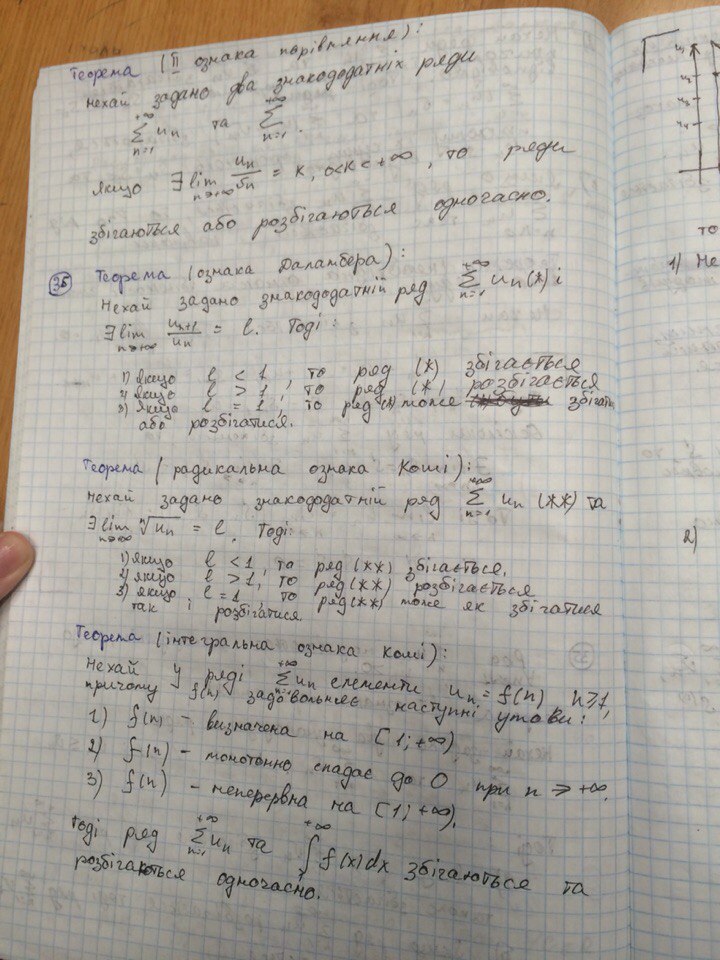 Теорема (II ознака порівняння):
Нехай задано два знакододатніх ряди
+∞ ∑ n=1 uₙ та +∞ ∑ n=1 .
Якщо ∃ lim n→+∞ uₙ/𝑣ₙ = K, 0<K<+∞, то ряди
збігаються або розбігаються одночасно.
35 Теорема (ознака Даламбера):
Нехай задано знакододатній ряд +∞ ∑ n=1 uₙ (*) і
∃ lim n→+∞ uₙ₊₁/uₙ = l. Тоді:
1) Якщо l < 1, то ряд (*) збігається
2) якщо l > 1, то ряд (*) розбігається
3) Якщо l = 1, то ряд (*) може збігати
або розбігатися.
Теорема (радикальна ознака Коші):
Нехай задано знакододатній ряд +∞ ∑ n=1 uₙ (**) та
∃ lim n→+∞ ⁿ√uₙ = l. Тоді:
1) якщо l < 1, то ряд (**) збігається.
2) якщо l > 1, то ряд (**) розбігається
3) якщо l = 1, то ряд (**) може як збігатися
так і розбігатися.
Теорема (інтегральна ознака Коші):
Нехай у ряді +∞ ∑ n=1 uₙ елементи uₙ = f(n) n≥1,
причому f(n) задовольняє наступні умови:
1) f(n) – визначена на [1; +∞)
2) f(n) – монотонно спадає до 0 при n → +∞.
3) f(n) – неперервна на [1; +∞).
Тоді ряд +∞ ∑ n=1 uₙ та +∞ ∫ 1 f(x)dx збігаються та
розбігаються одночасно.
u₁
u₃
u₄
то
1) Не
2)